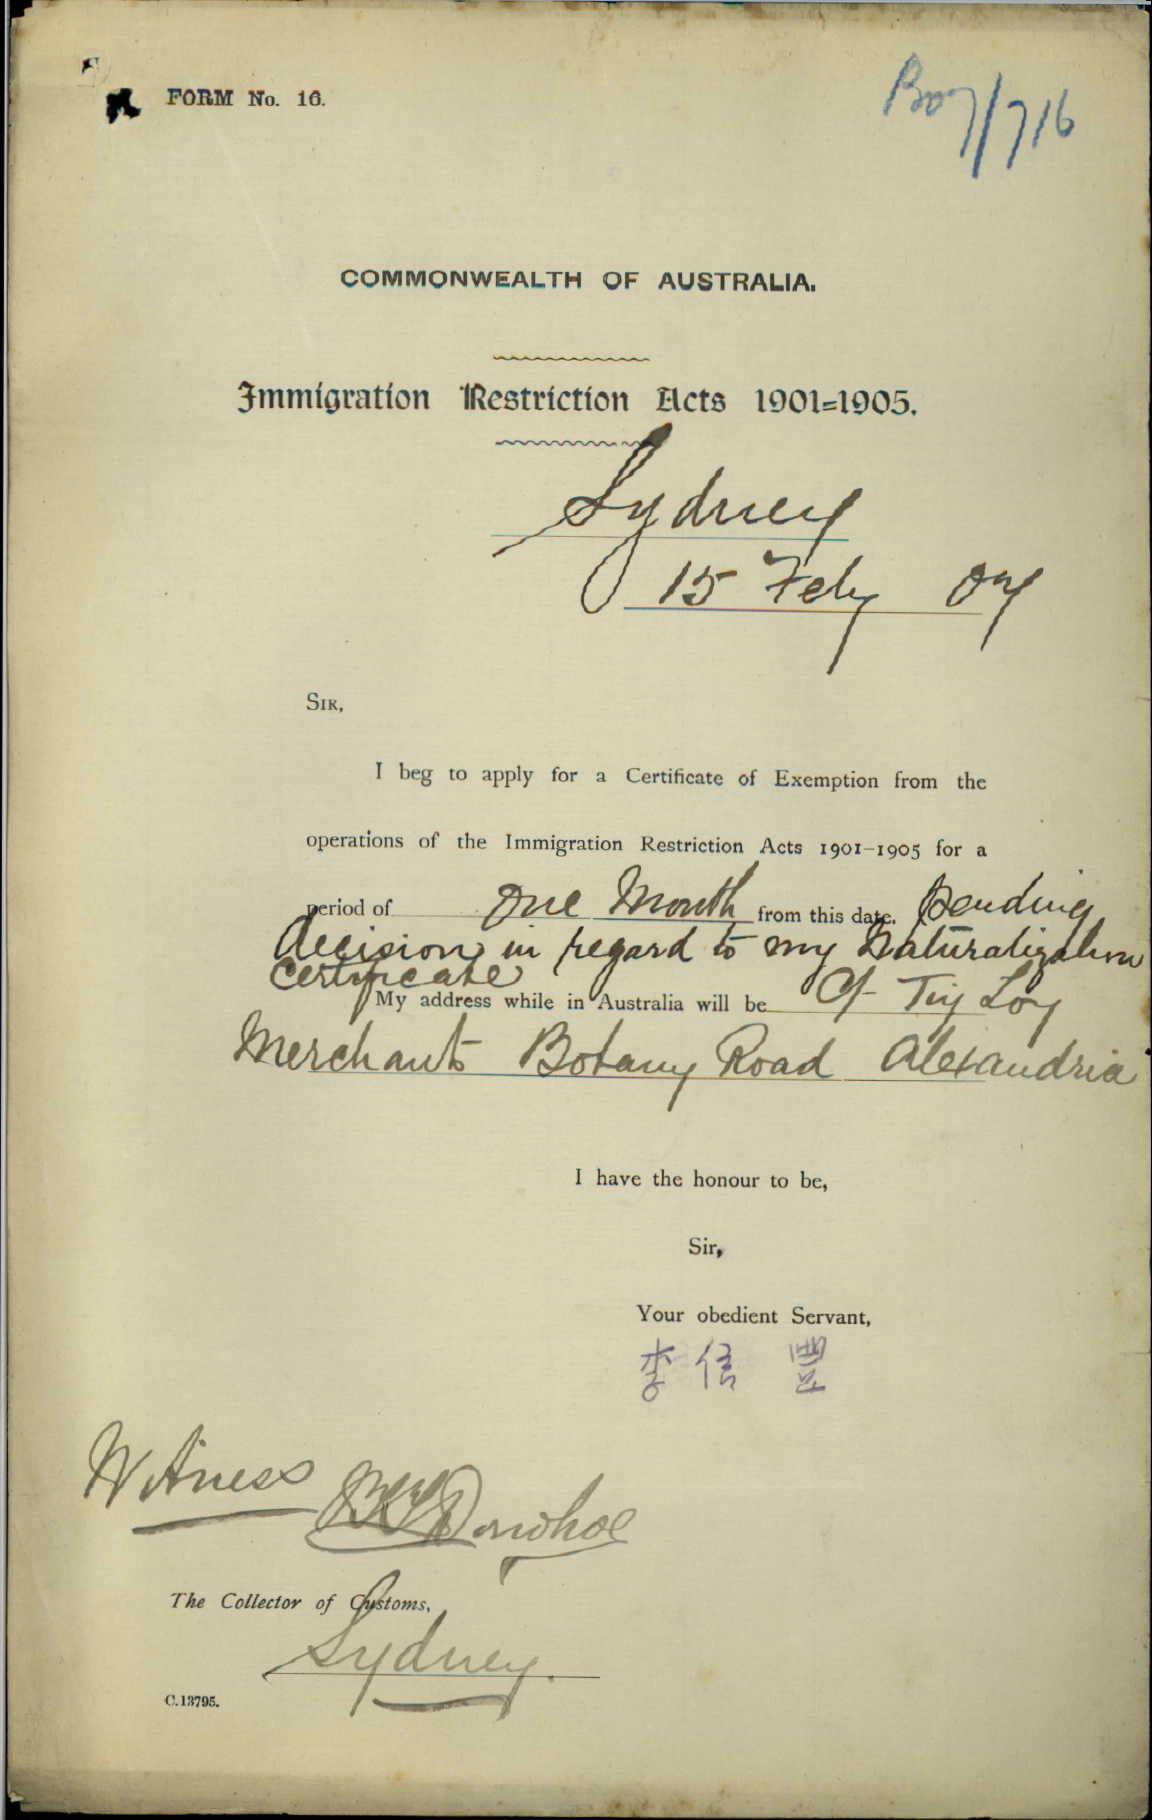 FORM No. 16.
B07/716
COMMONWEALTH OF AUSTRALIA.
Immigration Restriction Acts 1901=1905.
Sydney
15 Feby 07
SIR,
I beg to apply for a Certificate of Exemption from the
operations of the Immigration Restriction Acts 1901–1905 for a
period of One Month from this date. pending
decision in regard to my Naturalization
Certificate
My address while in Australia will be C/- Tiy Loy
Merchants Botany Road Alexandria
I have the honour to be,
Sir,
Your obedient Servant,
李信豐
Witness Donohoe
The Collector of Customs,
Sydney.
C.13795.